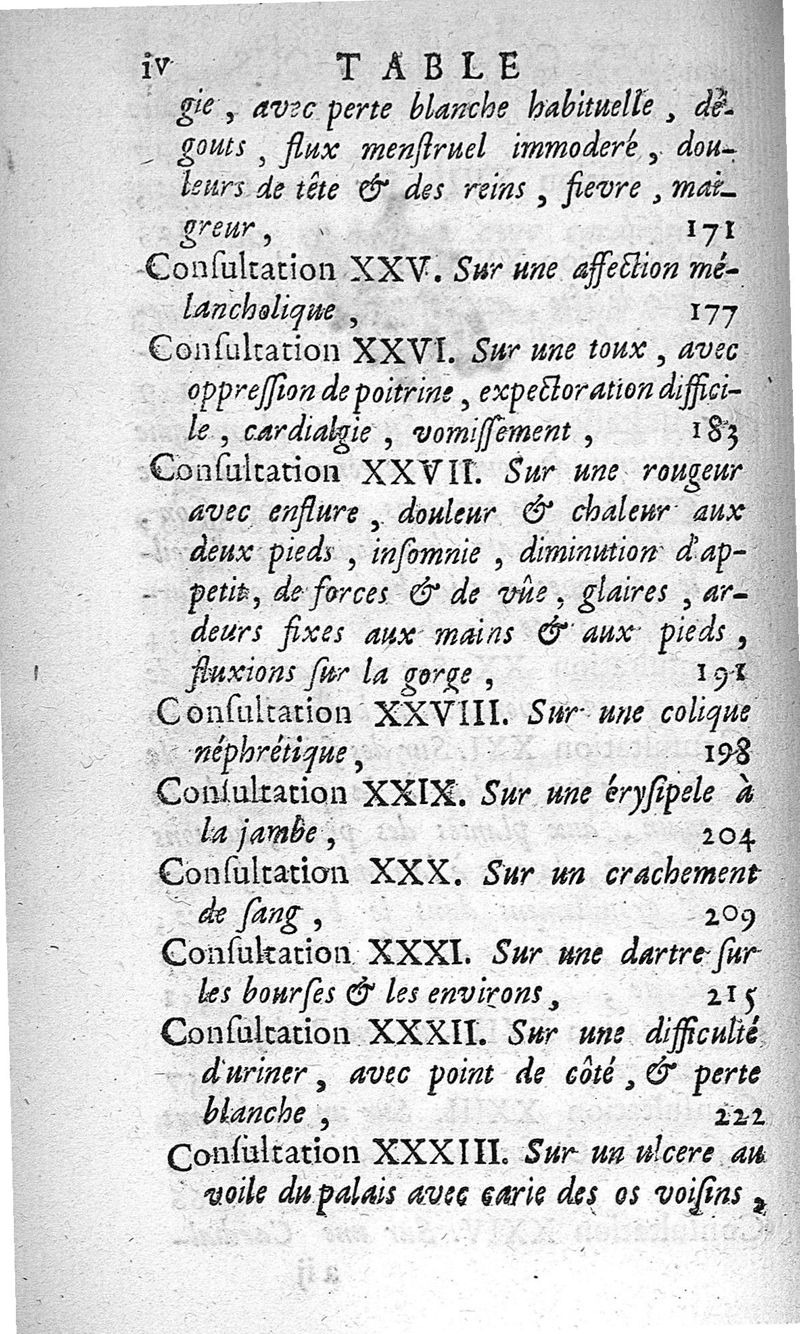 iv TABLE
gie, avec perte blanche habituelle, dé-
gouts, flux menſtruel immoderé, dou-
leurs de tête & des reins, fievre, mai-
greur, 171
Conſultation XXV. Sur une affection mé-
lancholique, 177
Conſultation XXVI. Sur une toux, avec
oppreſſion de poitrine, expectoration diffici-
le, cardialgie, vomiſſement, 183
Conſultation XXVII. Sur une rougeur
avec enflure, douleur & chaleur aux
deux pieds, inſomnie, diminution d'ap-
petit, de forces & de vûe, glaires, ar-
deurs fixes aux mains & aux pieds,
fluxions ſur la gorge, 191
Conſultation XXVIII. Sur une colique
néphrétique, 198
Conſultation XXIX. Sur une éryſipele à
la jambe, 204
Conſultation XXX. Sur un crachement
de ſang, 209
Conſultation XXXI. Sur une dartre ſur
les bourſes & les environs, 215
Conſultation XXXII. Sur une difficulté
d'uriner, avec point de côté, & perte
blanche, 222
Conſultation XXXIII. Sur un ulcere au
voile du palais avec carie des os voiſins,